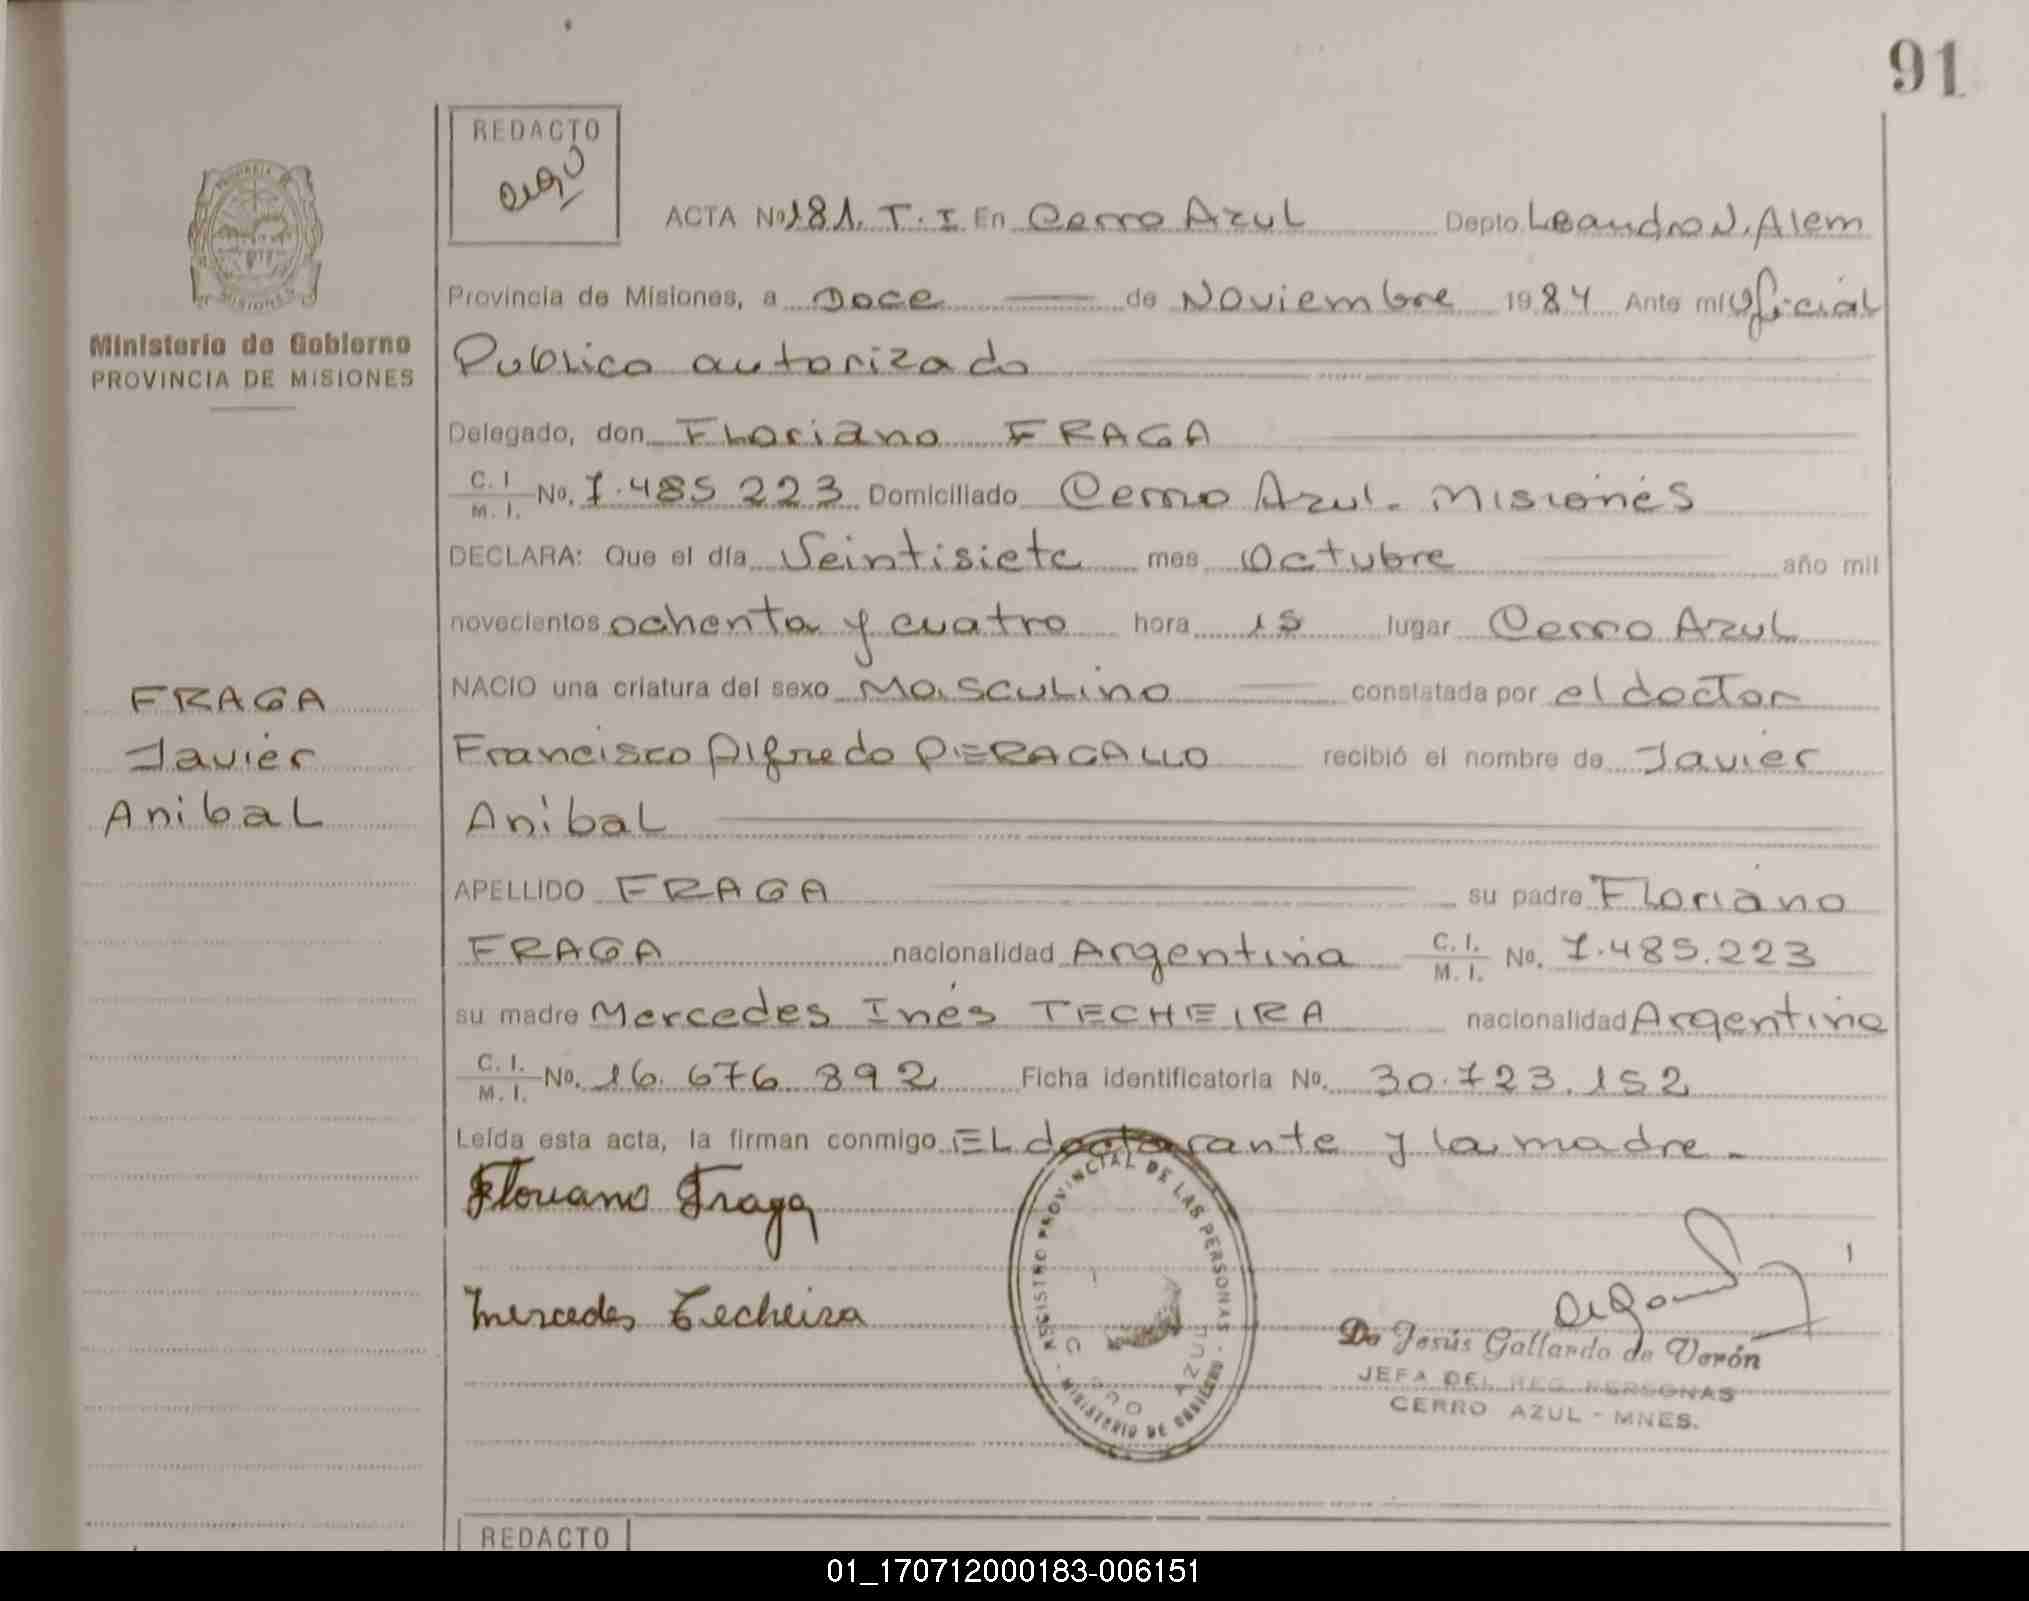 91
REDACTO
ACTA Nº 181. T. I En Cerro Azul Depto Leandro N. Alem
Provincia de Misiones, a Doce de Noviembre 1984 Ante mí Oficial
Publico autorizado
Ministerio de Gobierno
PROVINCIA DE MISIONES
Delegado, don Floriano FRAGA
C. I. / M. I. No. 7.485 223 Domiciliado Cerro Azul. Misiones
DECLARA: Que el día Veintisiete mes Octubre año mil
novecientos ochenta y cuatro hora 15 lugar Cerro Azul
NACIO una criatura del sexo Masculino constatada por el doctor
Francisco Alfredo PIERAGALLO recibió el nombre de Javier
Anibal
FRAGA
Javier
Anibal
APELLIDO FRAGA su padre Floriano
FRAGA nacionalidad Argentina C. I. / M. I. No. 7.485.223
su madre Mercedes Inés TECHEIRA nacionalidad Argentina
C. I. / M. I. No. 16. 676 892 Ficha identificatoria No. 30.723.152
Leída esta acta, la firman conmigo EL declarante y la madre.
Floriano Fraga
Mercedes Techeira
REGISTRO PROVINCIAL DE LAS PERSONAS
MINISTERIO DE GOBIERNO
CERRO AZUL
De Jesús Gallardo de Verón
JEFA DEL REG. PERSONAS
CERRO AZUL - MNES.
REDACTO
01_170712000183-006151